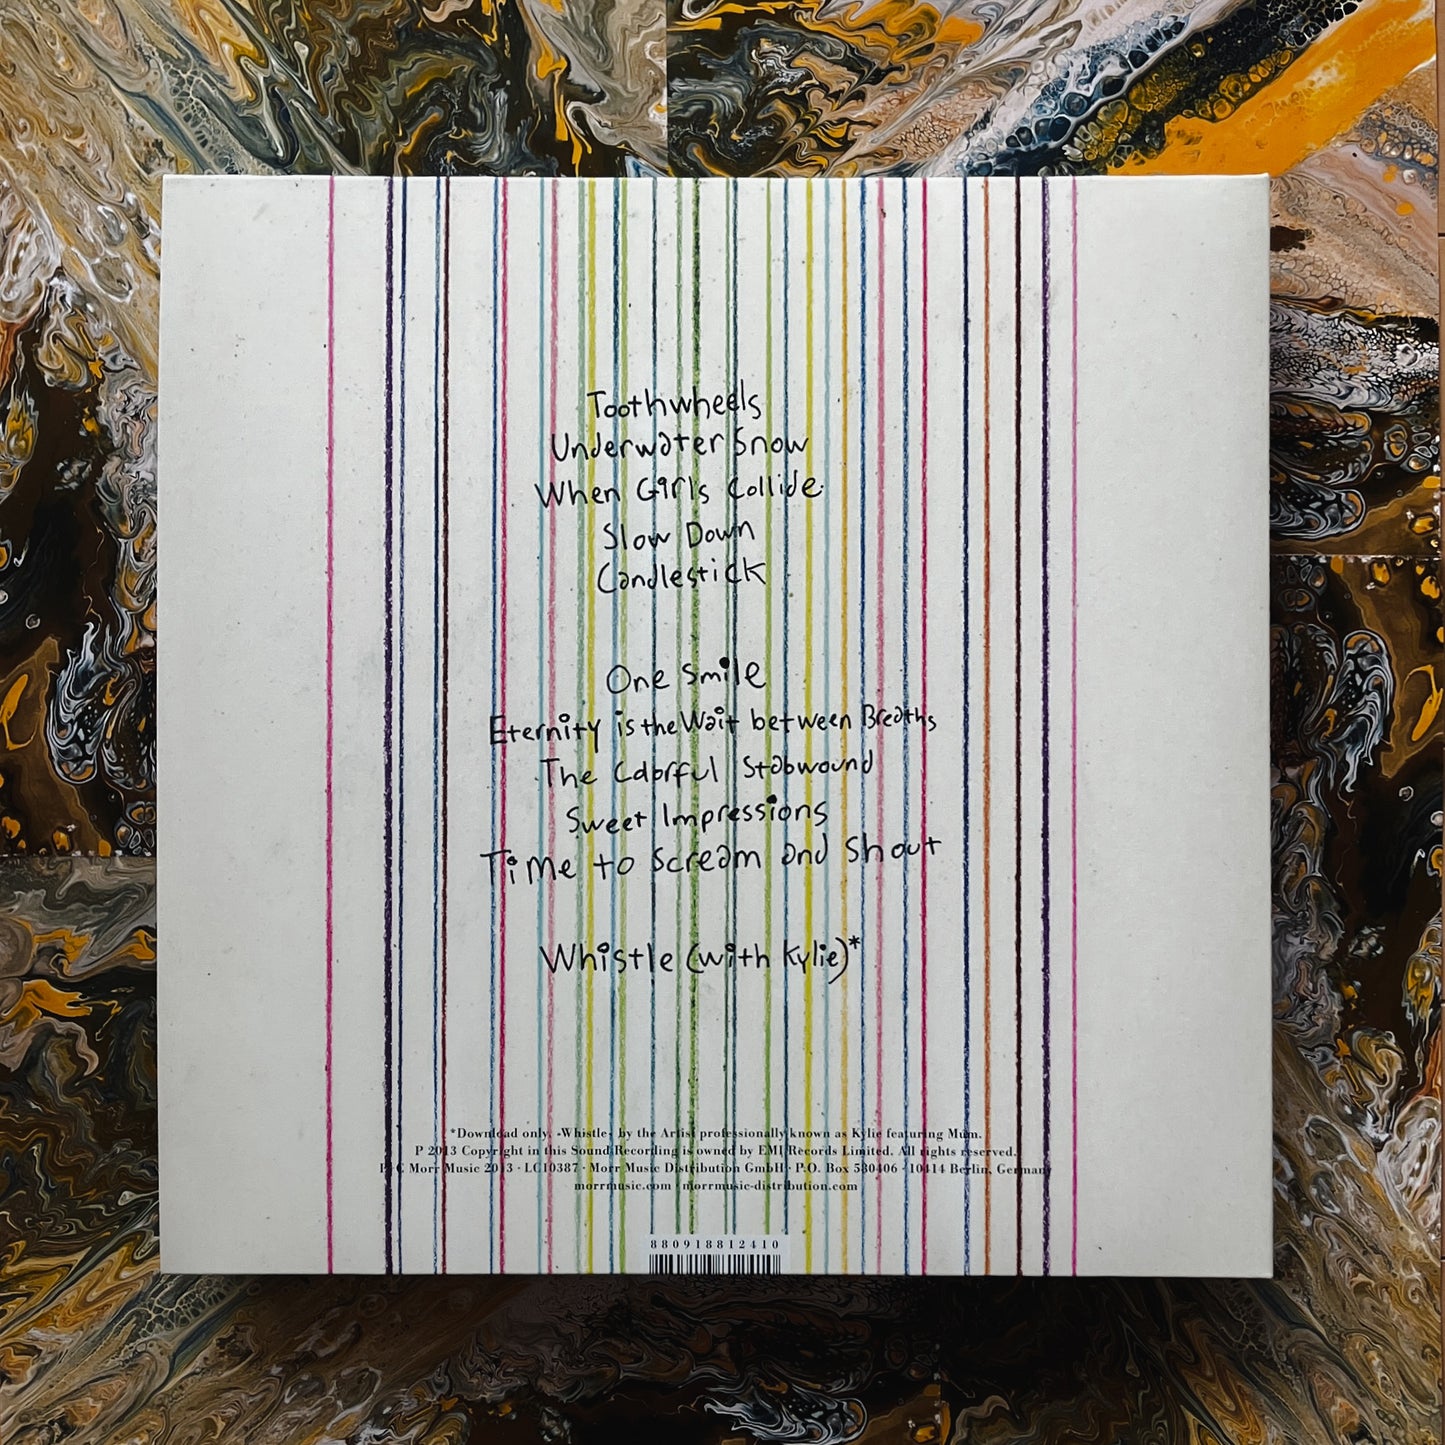 Toothwheels
Underwater Snow
When Girls Collide
Slow Down
Candlestick
One Smile
Eternity is the Wait between Breaths
The Colorful Stabwound
Sweet Impressions
Time to Scream and Shout
Whistle (with Kylie)*
*Download only. »Whistle« by the Artist professionally known as Kylie featuring Múm.
P 2013 Copyright in this Sound Recording is owned by EMI Records Limited. All rights reserved.
P+C Morr Music 2013 · LC10387 · Morr Music Distribution GmbH · P.O. Box 580406 · 10414 Berlin, Germany
morrmusic.com · morrmusic-distribution.com
880918812410